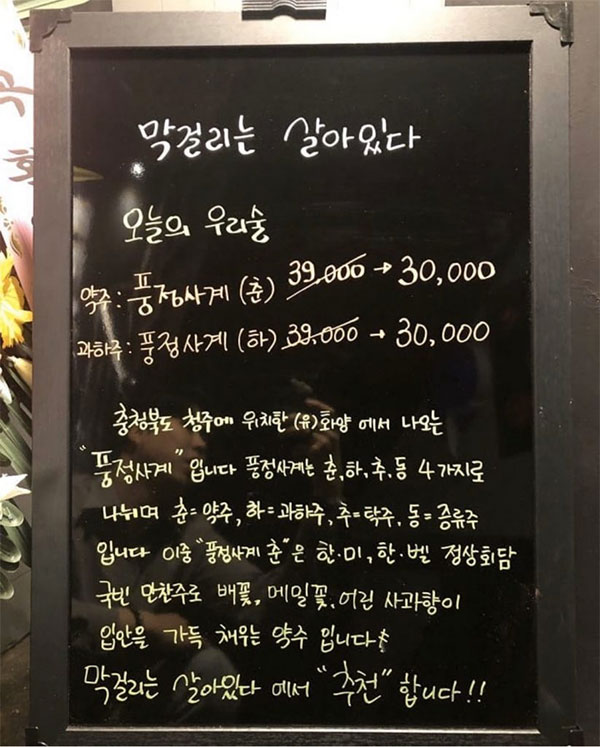 막걸리는 살아있다
오늘의 우리술
약주 : 풍정사계 (춘) 39,000 → 30,000
과하주 : 풍정사계 (하) 39,000 → 30,000
충청북도 청주에 위치한 (유)화양 에서 나오는
"풍정사계" 입니다 풍정사계는 춘,하,추,동 4가지로
나뉘며 춘=약주, 하=과하주, 추=탁주, 동=증류주
입니다 이중 "풍정사계 춘"은 한·미, 한·벨 정상회담
국빈 만찬주로 배꽃, 메밀꽃, 어린 사과향이
입안을 가득 채우는 약주 입니다
막걸리는 살아있다 에서 "추천" 합니다!!